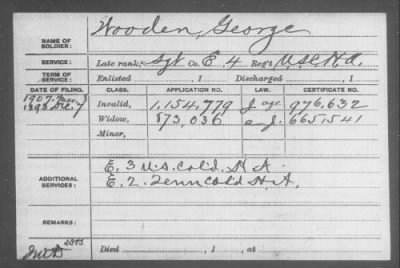 Wooden, George
NAME OF SOLDIER:
SERVICE: Late rank, Sgt Co. E, 4 Reg't U.S.C.H.A.
TERM OF SERVICE: Enlisted , 1 Discharged , 1
DATE OF FILING. CLASS. APPLICATION NO. LAW. CERTIFICATE NO.
1907. Mar. 8 Invalid, 1,154,779 J age 976,632
1898 Dec. 7 Widow, 873,036 a-J. 665,541
Minor,
ADDITIONAL SERVICES: E. 3 U.S. Col'd. H A.
E. 2. Tenn Col'd H A.
REMARKS:
Died , 1 , at